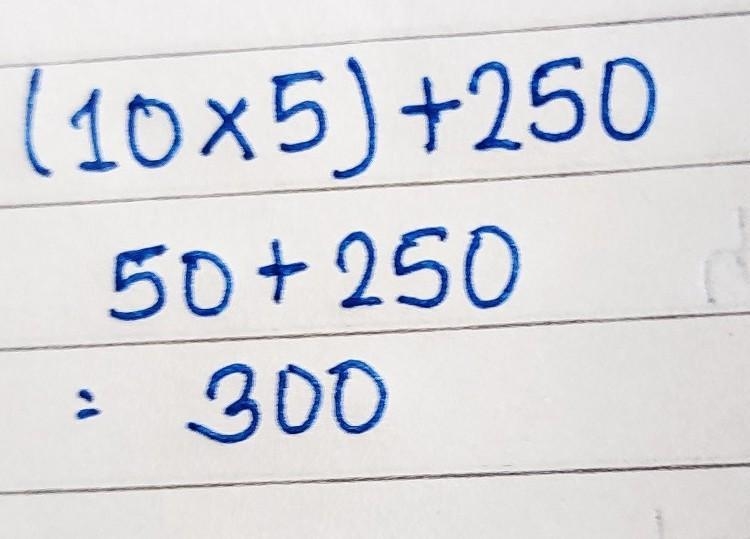 (10×5)+250
50+250
= 300